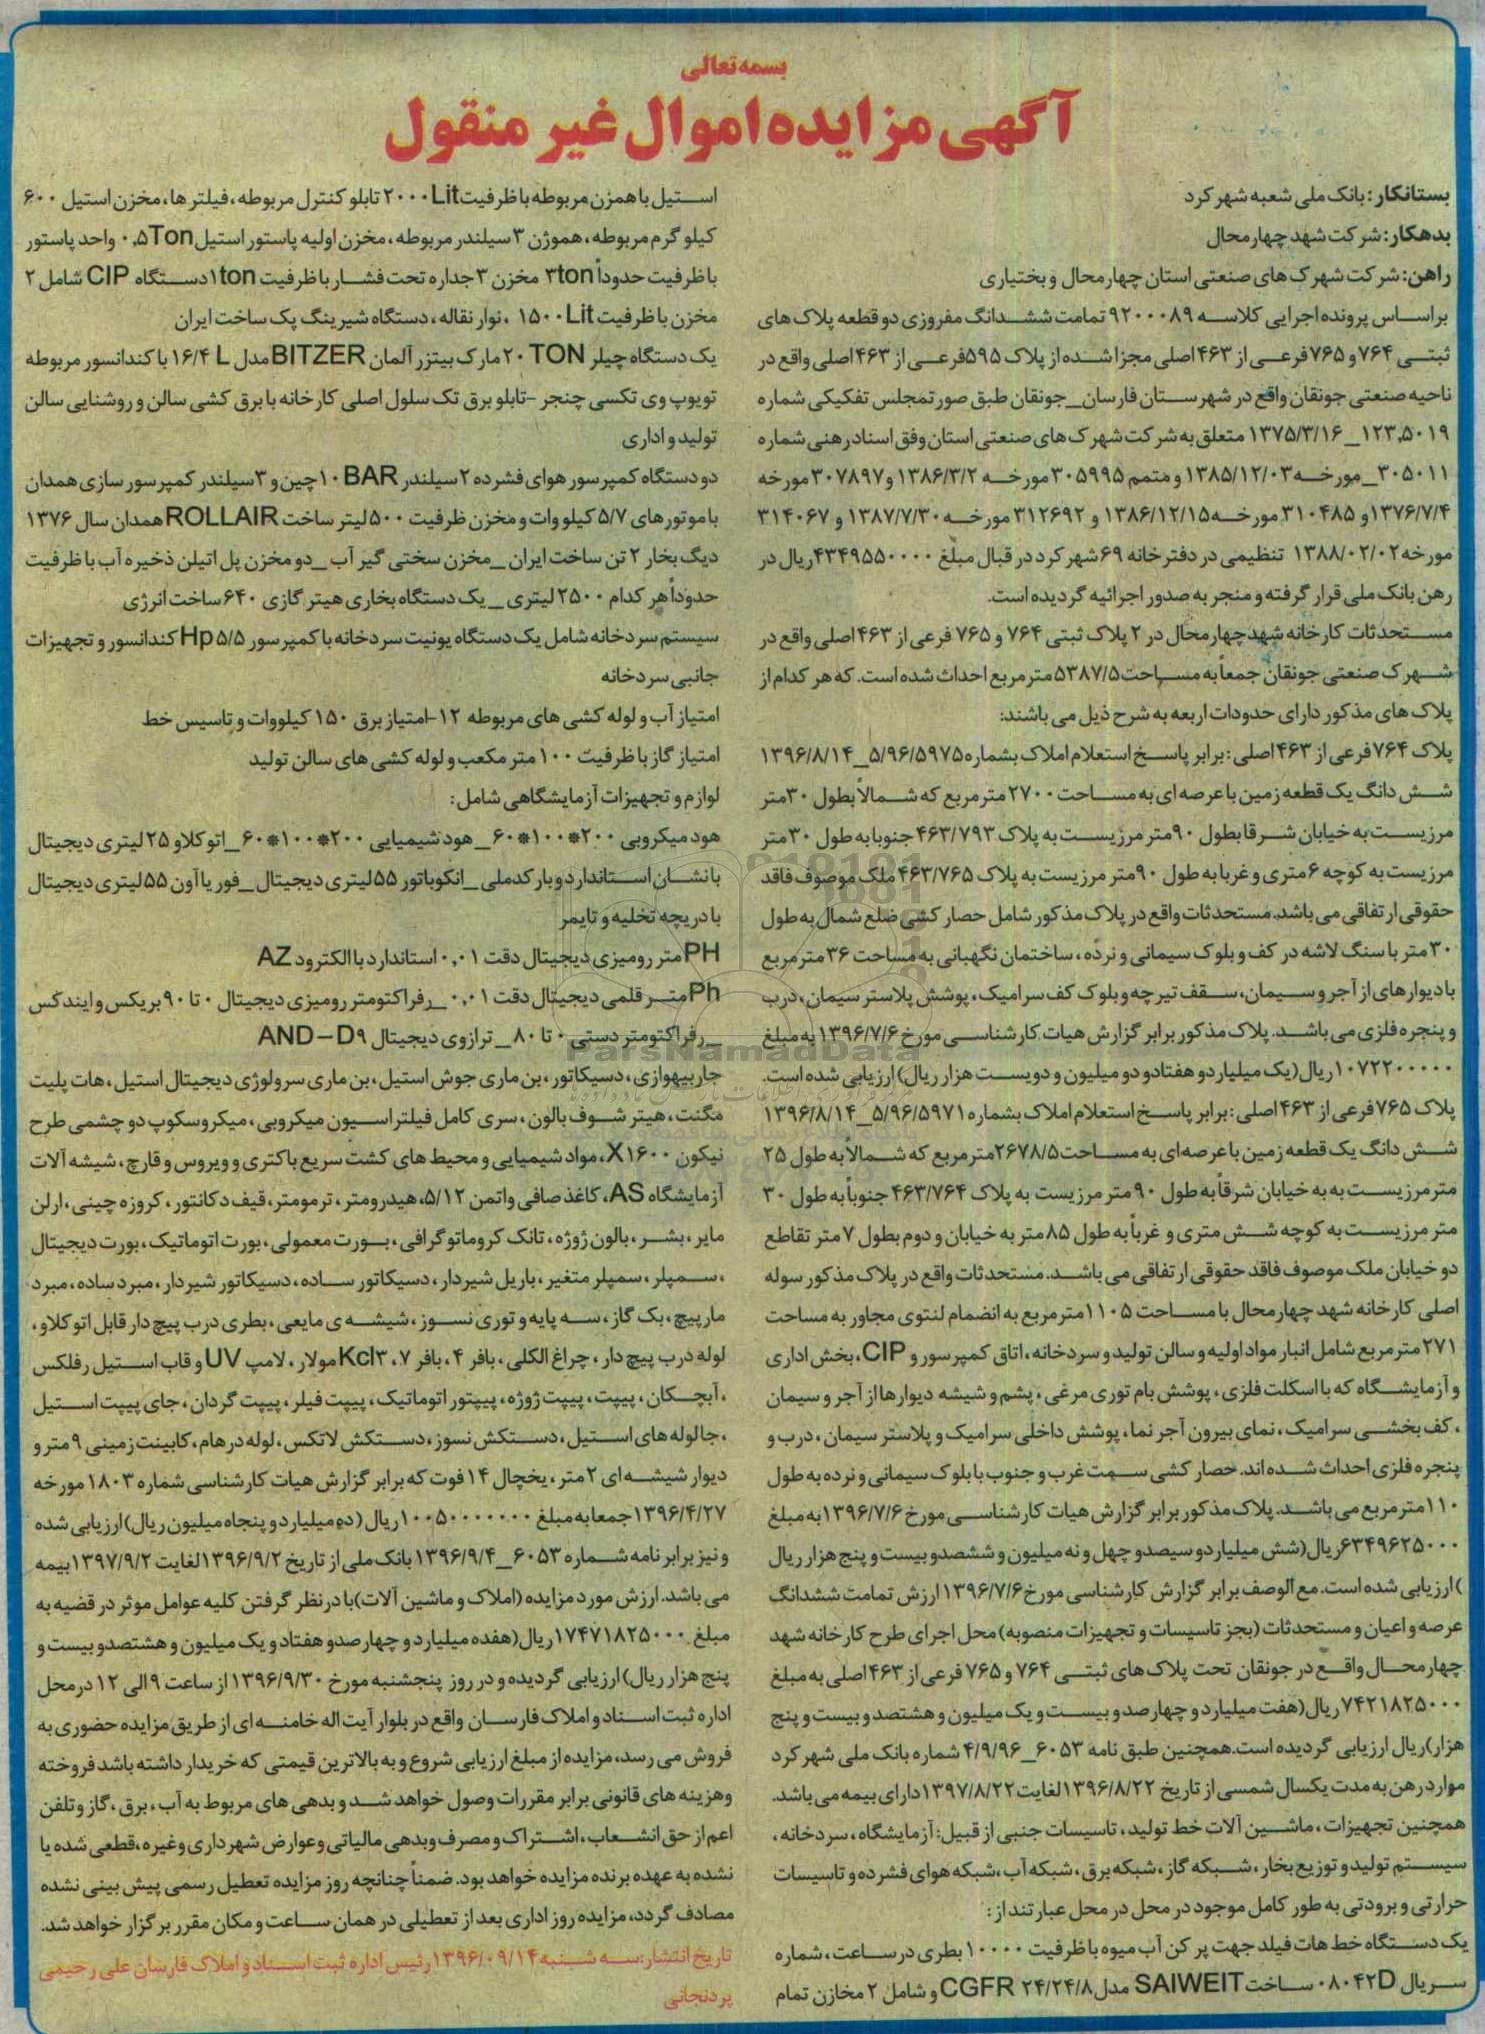 بسمه تعالی
آگهی مزایده اموال غیر منقول
بستانکار: بانک ملی شعبه شهر کرد
بدهکار: شرکت شهد چهارمحال
راهن: شرکت شهرک های صنعتی استان چهارمحال و بختیاری
براساس پرونده اجرایی کلاسه ۹۲۰۰۰۸۹ تمامت ششدانگ مفروزی دو قطعه پلاک های
ثبتی ۷۶۴ و ۷۶۵ فرعی از ۴۶۳ اصلی مجزا شده از پلاک ۵۹۵ فرعی از ۴۶۳ اصلی واقع در
ناحیه صنعتی جونقان واقع در شهرستان فارسان_جونقان طبق صورتمجلس تفکیکی شماره
۱۲۳,۵۰۱۹_ ۱۳۷۵/۳/۱۶ متعلق به شرکت شهرک های صنعتی استان وفق اسناد رهنی شماره
۳۰۵۰۱۱_مورخه ۱۳۸۵/۱۲/۰۳ و متمم ۳۰۵۹۹۵ مورخه ۱۳۸۶/۳/۲ و ۳۰۷۸۹۷ مورخه
۱۳۷۶/۷/۴ و ۳۱۰۴۸۵ مورخه ۱۳۸۶/۱۲/۱۵ و ۳۱۲۶۹۲ مورخه ۱۳۸۷/۷/۳۰ و ۳۱۴۰۶۷
مورخه ۱۳۸۸/۰۲/۰۲ تنظیمی در دفترخانه ۶۹ شهر کرد در قبال مبلغ ۴۳۴۹۵۵۰۰۰۰ ریال در
رهن بانک ملی قرار گرفته و منجر به صدور اجرائیه گردیده است.
مستحدثات کارخانه شهد چهارمحال در ۲ پلاک ثبتی ۷۶۴ و ۷۶۵ فرعی از ۴۶۳ اصلی واقع در
شهرک صنعتی جونقان جمعاً به مساحت ۵۳۸۷/۵ مترمربع احداث شده است. که هر کدام از
پلاک های مذکور دارای حدودات اربعه به شرح ذیل می باشند:
پلاک ۷۶۴ فرعی از ۴۶۳ اصلی: برابر پاسخ استعلام املاک بشماره ۵/۹۶/۵۹۷۵_۱۳۹۶/۸/۱۴
شش دانگ یک قطعه زمین با عرصه ای به مساحت ۲۷۰۰ مترمربع که شمالاً بطول ۳۰ متر
مرزیست به خیابان شرقا بطول ۹۰ متر مرزیست به پلاک ۴۶۳/۷۹۳ جنوبا به طول ۳۰ متر
مرزیست به کوچه ۶ متری و غربا به طول ۹۰ متر مرزیست به پلاک ۴۶۳/۷۶۵ ملک موصوف فاقد
حقوقی ارتفاقی می باشد. مستحدثات واقع در پلاک مذکور شامل حصار کشی ضلع شمال به طول
۳۰ متر با سنگ لاشه در کف و بلوک سیمانی و نرده، ساختمان نگهبانی به مساحت ۳۶ مترمربع
با دیوارهای از آجر و سیمان، سقف تیرچه و بلوک کف سرامیک، پوشش پلاستر سیمان، درب
و پنجره فلزی می باشد. پلاک مذکور برابر گزارش هیات کارشناسی مورخ ۱۳۹۶/۷/۶ به مبلغ
۱۰۷۲۲۰۰۰۰۰ ریال (یک میلیارد و هفتادو دو میلیون و دویست هزار ریال) ارزیابی شده است.
پلاک ۷۶۵ فرعی از ۴۶۳ اصلی: برابر پاسخ استعلام املاک بشماره ۵/۹۶/۵۹۷۱_۱۳۹۶/۸/۱۴
شش دانگ یک قطعه زمین با عرصه ای به مساحت ۲۶۷۸/۵ مترمربع که شمالاً به طول ۲۵
متر مرزیست به به خیابان شرقاً به طول ۹۰ متر مرزیست به پلاک ۴۶۳/۷۶۴ جنوباً به طول ۳۰
متر مرزیست به کوچه شش متری و غرباً به طول ۸۵ متر به خیابان و دوم بطول ۷ متر تقاطع
دو خیابان ملک موصوف فاقد حقوقی ارتفاقی می باشد. مستحدثات واقع در پلاک مذکور سوله
اصلی کارخانه شهد چهارمحال با مساحت ۱۱۰۵ مترمربع به انضمام لنتوی مجاور به مساحت
۲۷۱ مترمربع شامل انبار مواد اولیه و سالن تولید و سردخانه، اتاق کمپرسور و CIP، بخش اداری
و آزمایشگاه که با اسکلت فلزی، پوشش بام توری مرغی، پشم و شیشه دیوارها از آجر و سیمان
، کف بخشی سرامیک، نمای بیرون آجر نما، پوشش داخلی سرامیک و پلاستر سیمان، درب و
پنجره فلزی احداث شده اند. حصار کشی سمت غرب و جنوب با بلوک سیمانی و نرده به طول
۱۱۰ مترمربع می باشد. پلاک مذکور برابر گزارش هیات کارشناسی مورخ ۱۳۹۶/۷/۶ به مبلغ
۶۳۴۹۶۲۵۰۰۰ ریال (شش میلیارد و سیصدو چهل و نه میلیون و ششصدو بیست و پنج هزار ریال
) ارزیابی شده است. مع الوصف برابر گزارش کارشناسی مورخ ۱۳۹۶/۷/۶ ارزش تمامت ششدانگ
عرصه و اعیان و مستحدثات (بجز تاسیسات و تجهیزات منصوبه) محل اجرای طرح کارخانه شهد
چهارمحال واقع در جونقان تحت پلاک های ثبتی ۷۶۴ و ۷۶۵ فرعی از ۴۶۳ اصلی به مبلغ
۷۴۲۱۸۲۵۰۰۰ ریال (هفت میلیارد و چهارصد و بیست و یک میلیون و هشتصد و بیست و پنج
هزار) ریال ارزیابی گردیده است. همچنین طبق نامه ۶۰۵۳_۴/۹/۹۶ شماره بانک ملی شهر کرد
موارد رهن به مدت یکسال شمسی از تاریخ ۱۳۹۶/۸/۲۲ لغایت ۱۳۹۷/۸/۲۲ دارای بیمه می باشد.
همچنین تجهیزات، ماشین آلات خط تولید، تاسیسات جنبی از قبیل: آزمایشگاه، سردخانه،
سیستم تولید و توزیع بخار، شبکه گاز، شبکه برق، شبکه آب، شبکه هوای فشرده و تاسیسات
حرارتی و برودتی به طور کامل موجود در محل در محل عبارتند از:
یک دستگاه خط هات فیلد جهت پر کن آب میوه با ظرفیت ۱۰۰۰۰ بطری در ساعت، شماره
سریال ۰۸۰۴۲D ساخت SAIWEIT مدل ۲۴/۲۴/۸ CGFR و شامل ۲ مخازن تمام
استیل با همزن مربوطه با ظرفیت ۲۰۰۰Lit تابلو کنترل مربوطه، فیلتر ها، مخزن استیل ۶۰۰
کیلو گرم مربوطه، هموژن ۳ سیلندر مربوطه، مخزن اولیه پاستور استیل ۰,۵Ton واحد پاستور
با ظرفیت حدوداً ۳ton مخزن ۳ جداره تحت فشار با ظرفیت ۱ton دستگاه CIP شامل ۲
مخزن با ظرفیت ۱۵۰۰Lit ، نوار نقاله، دستگاه شیرینگ پک ساخت ایران
یک دستگاه چیلر ۲۰ TON مارک بیتزر آلمان BITZER مدل ۱۶/۴ L با کندانسور مربوطه
تویوپ وی تکسی چنجر –تابلو برق تک سلول اصلی کارخانه با برق کشی سالن و روشنایی سالن
تولید و اداری
دو دستگاه کمپرسور هوای فشرده ۲ سیلندر ۱۰BAR چین و ۳ سیلندر کمپرسور سازی همدان
با موتورهای ۵/۷ کیلو وات و مخزن ظرفیت ۵۰۰ لیتر ساخت ROLLAIR همدان سال ۱۳۷۶
دیگ بخار ۲ تن ساخت ایران _مخزن سختی گیر آب _دو مخزن پل اتیلن ذخیره آب با ظرفیت
حدوداً هر کدام ۲۵۰۰ لیتری _ یک دستگاه بخاری هیتر گازی ۶۴۰ ساخت انرژی
سیستم سردخانه شامل یک دستگاه یونیت سردخانه با کمپرسور ۵/۵ Hp کندانسور و تجهیزات
جانبی سردخانه
امتیاز آب و لوله کشی های مربوطه ۱۲-امتیاز برق ۱۵۰ کیلووات و تاسیس خط
امتیاز گاز با ظرفیت ۱۰۰ متر مکعب و لوله کشی های سالن تولید
لوازم و تجهیزات آزمایشگاهی شامل:
هود میکروبی ۲۰۰*۱۰۰*۶۰ _ هود شیمیایی ۲۰۰*۱۰۰*۶۰ _اتو کلاو ۲۵ لیتری دیجیتال
با نشان استاندارد و بارکد ملی _انکوباتور ۵۵ لیتری دیجیتال _فور یا آون ۵۵ لیتری دیجیتال
با دریچه تخلیه و تایمر
PH متر رومیزی دیجیتال دقت ۰,۰۱ استاندارد با الکترود AZ
Ph متر قلمی دیجیتال دقت ۰,۰۱ _رفراکتومتر رومیزی دیجیتال ۰ تا ۹۰ بریکس و ایندکس
_رفراکتومتر دستی ۰ تا ۸۰ _ ترازوی دیجیتال AND–D۹
جاربیهوازی، دسیکاتور، بن ماری جوش استیل، بن ماری سرولوژی دیجیتال استیل، هات پلیت
مگنت، هیتر شوف بالون، سری کامل فیلتراسیون میکروبی، میکروسکوپ دو چشمی طرح
نیکون X۱۶۰۰، مواد شیمیایی و محیط های کشت سریع باکتری و ویروس و قارچ، شیشه آلات
آزمایشگاه AS، کاغذ صافی واتمن ۵/۱۲، هیدرومتر، ترمومتر، قیف دکانتور، کروزه چینی، ارلن
مایر، بشر، بالون ژوژه، تانک کروماتوگرافی، بورت معمولی، بورت اتوماتیک، بورت دیجیتال
، سمپلر، سمپلر متغیر، باریل شیردار، دسیکاتور ساده، دسیکاتور شیردار، مبرد ساده، مبرد
مارپیچ، بک گاز، سه پایه و توری نسوز، شیشه ی مایعی، بطری درب پیچ دار قابل اتوکلاو،
لوله درب پیچ دار، چراغ الکلی، بافر ۴، بافر ۷، Kcl۳ مولار، لامپ UV و قاب استیل رفلکس
، آبچکان، پیپت، پیپت ژوژه، پیپتور اتوماتیک، پیپت فیلر، پیپت گردان، جای پیپت استیل
، جا لوله های استیل، دستکش نسوز، دستکش لاتکس، لوله درهام، کابینت زمینی ۹ متر و
دیوار شیشه ای ۲ متر، یخچال ۱۴ فوت که برابر گزارش هیات کارشناسی شماره ۱۸۰۳ مورخه
۱۳۹۶/۴/۲۷ جمعا به مبلغ ۱۰۰۵۰۰۰۰۰۰۰ ریال (ده میلیارد و پنجاه میلیون ریال) ارزیابی شده
و نیز برابر نامه شماره ۶۰۵۳_۱۳۹۶/۹/۴ بانک ملی از تاریخ ۱۳۹۶/۹/۲ لغایت ۱۳۹۷/۹/۲ بیمه
می باشد. ارزش مورد مزایده (املاک و ماشین آلات) با درنظر گرفتن کلیه عوامل موثر در قضیه به
مبلغ ۱۷۴۷۱۸۲۵۰۰۰ ریال (هفده میلیارد و چهارصدو هفتاد و یک میلیون و هشتصدو بیست و
پنج هزار ریال) ارزیابی گردیده و در روز پنجشنبه مورخ ۱۳۹۶/۹/۳۰ از ساعت ۹ الی ۱۲ در محل
اداره ثبت اسناد و املاک فارسان واقع در بلوار آیت اله خامنه ای از طریق مزایده حضوری به
فروش می رسد، مزایده از مبلغ ارزیابی شروع و به بالاترین قیمتی که خریدار داشته باشد فروخته
وهزینه های قانونی برابر مقررات وصول خواهد شد و بدهی های مربوط به آب، برق، گاز و تلفن
اعم از حق انشعاب، اشتراک و مصرف وبدهی مالیاتی وعوارض شهرداری وغیره، قطعی شده یا
نشده به عهده برنده مزایده خواهد بود. ضمناً چنانچه روز مزایده تعطیل رسمی پیش بینی نشده
مصادف گردد، مزایده روز اداری بعد از تعطیلی در همان ساعت و مکان مقرر برگزار خواهد شد.
تاریخ انتشار: سه شنبه ۱۳۹۶/۰۹/۱۴ رئیس اداره ثبت اسناد و املاک فارسان علی رحیمی
پردنجانی
ParsNamadData